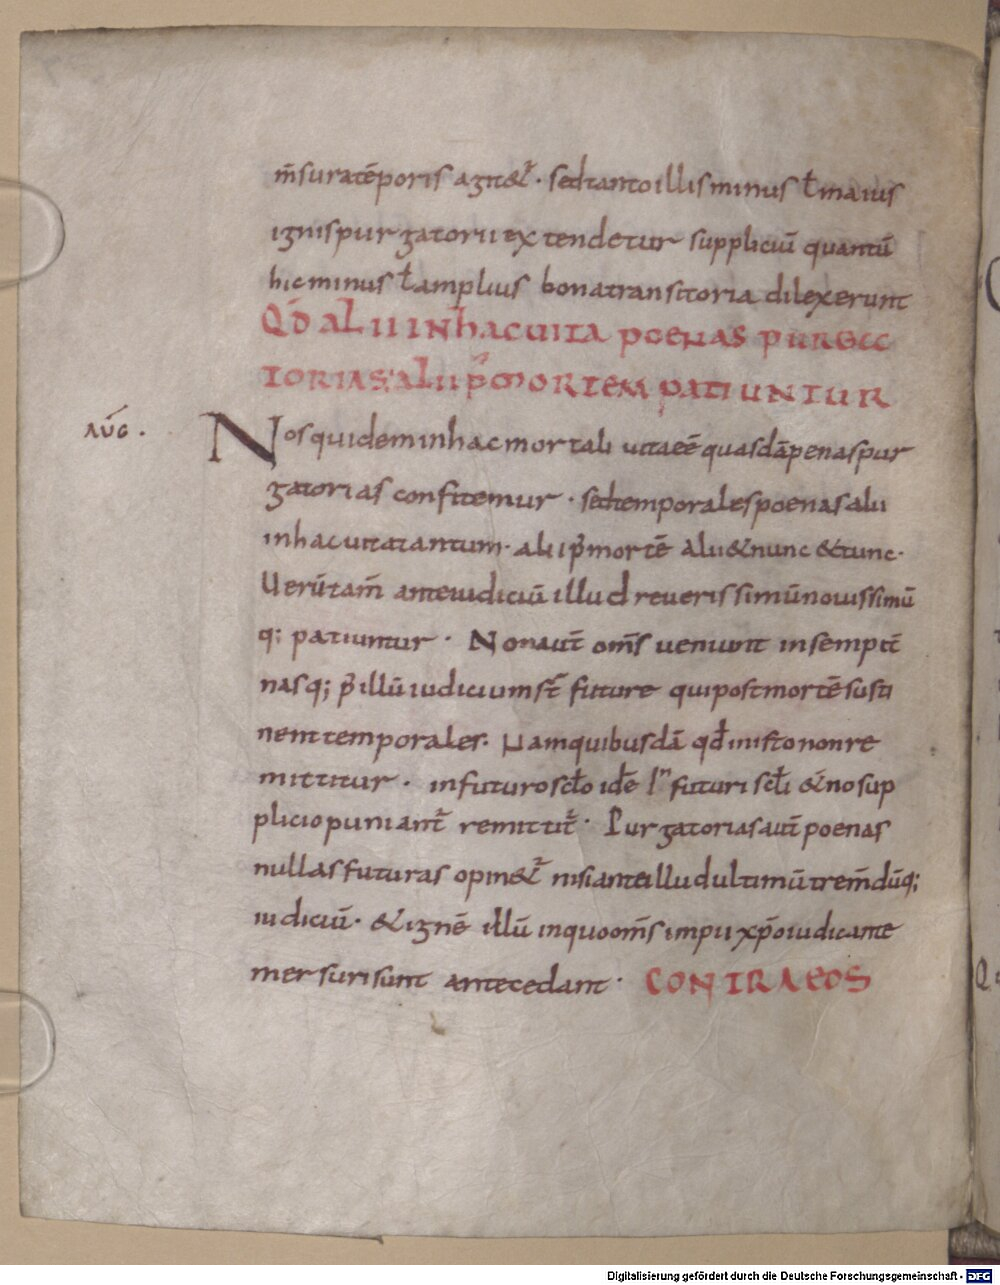 m̄suratēporis agit&ᷣ · sedtantoillisminus ƚ maius
ignispurgatorii extendetur suppliciū quantū
hicminus ƚ amplius bonatransitoria dilexerunt
QD̄ ALII INHACUITA POENAS PURGA
TORIAS· ALII P̄ MORTEM PATIUNTUR
AUḠ · Nosquideminhacmortali uitaeē quasdāpenaspur
gatorias confitemur · sedtemporalespoenasalii
inhacuitatantum· alii p̄mortē alii&nunc &tunc·
Uerūtam̄ anteiudiciū illud seuerissimūnouissimū
q; patiuntur · Nonaut̄ om̄s ueniunt insempit̄
nasq; p̄illūiudiciumst̄ future quipostmortēsusti
nenttemporales· Namquibusdā qd̄inistononre
mittitur · infuturosclo ide ne futuri scli &ernosup
pliciopuniant̄ remittit̄ · Purgatoriasaut̄poenas
nullasfuturas opin&ᷣ nisianteilludultimūtrem̄dūq;
iudiciū· &ignē illū inquoom̄simpii xp̄oiudicante
mersurisunt antecedant · CONTRA EOS
Digitalisierung gefördert durch die Deutsche Forschungsgemeinschaft - DFG